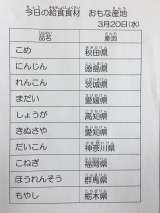 今日の給食食材　おもな産地
3月20日(水)
品名　産地
こめ　秋田県
にんじん　徳島県
れんこん　茨城県
まだい　愛媛県
しょうが　高知県
きぬさや　愛知県
だいこん　神奈川県
こねぎ　福岡県
ほうれんそう　群馬県
もやし　栃木県